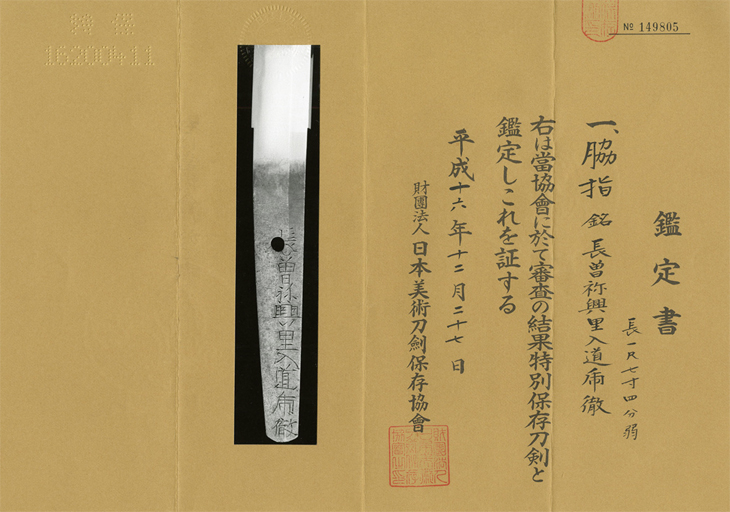 № 149805
鑑定書
一、脇指 銘 長曽祢興里入道乕徹
長一尺七寸四分弱
右は當協會に於て審査の結果特別保存刀剣と
鑑定しこれを証する
平成十六年十二月二十七日
財團法人 日本美術刀劍保存協會
長曽祢興里入道乕徹
16200411